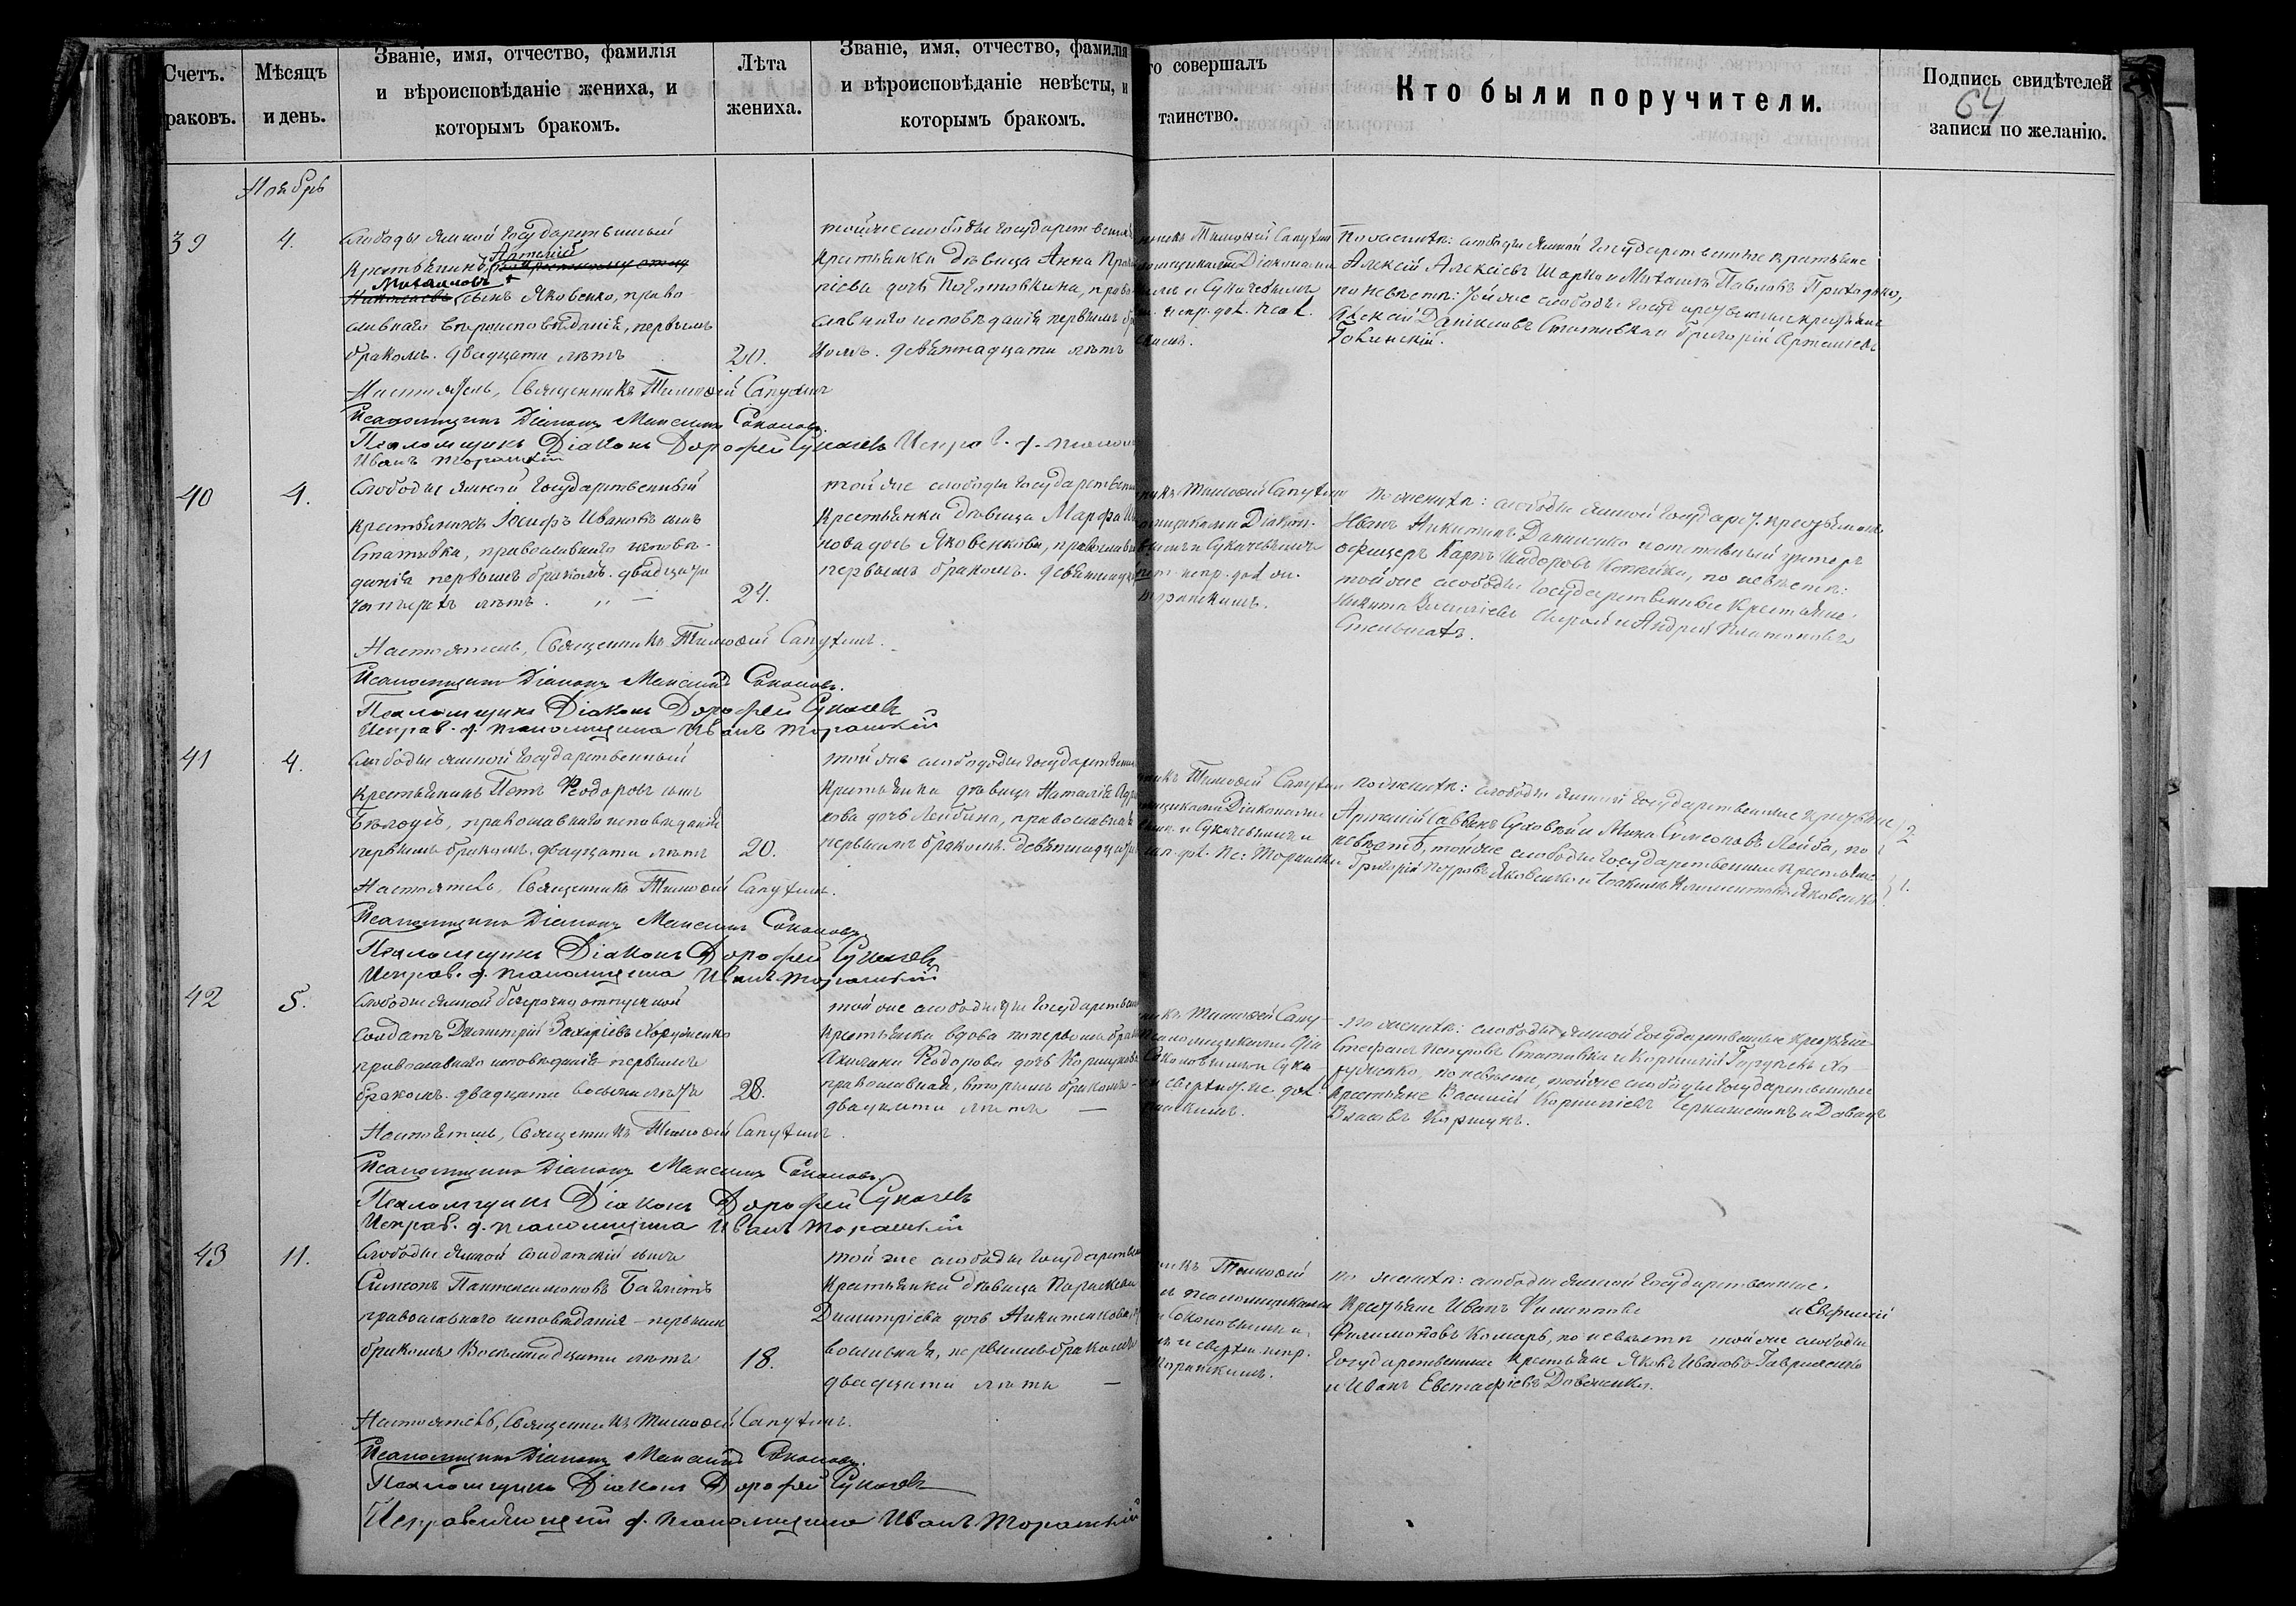 Счетъ.
раковъ.
Мѣсяцъ
и день.
Званіе, имя, отчество, фамилія
и вѣроисповѣданіе жениха, и
которымъ бракомъ.
Лѣта
жениха.
Званіе, имя, отчество, фамилія
и вѣроисповѣданіе невѣсты, и
которымъ бракомъ.
го совершалъ
таинство.
Кто были поручители.
Подпись свидѣтелей
записи по желанію.
64
Ноябрь
39
4.
Слободы Государственный
Крестьянинъ
Михаиловъ сынъ Яковенко, право-
славнаго вѣроисповѣданія, первымъ
бракомъ. двадцати лѣтъ
20.
тойже слободы Государствен
Крестьянка дѣвица Анна
дочь право
славнаго исповѣданія первымъ бра
комъ. девятнадцати лѣтъ
Тимоѳей Сапухин
Діаконами
и Сукачевымъ
По женихѣ: слободы Государственные крестьяне
Алексій Алексіевъ и Павловъ Приходько,
по невѣстѣ: тойже слободы Государственные крестьяне
Алексій Даніиловъ Стативка и Григорій Артеміевъ
Настоятель, Священникъ Тимоѳей Сапухинъ
Псаломщикъ Діаконъ Максимъ Соколовъ.
Псаломщикъ Діаконъ Дорофей Сукачевъ Исправ. д. псалом
Иванъ Торанскій
40
4.
Слободы Государственный
крестьянинъ Іосифъ Ивановъ сынъ
Стативка, православнаго исповѣ-
данія первымъ бракомъ. двадцати
четырехъ лѣтъ. " —
24.
тойже слободы Государствен
Крестьянка дѣвица Марфа
нова дочь Яковенкова, православ
первымъ бракомъ. девятнадца
Тимоѳей Сапухин
Діакон-
и Сукачевымъ
Торанскимъ.
По женихѣ: слободы Государ. крестьянинъ
Иванъ Никитинъ Даниленко и отставный унтеръ
офицеръ Карпъ по невѣстѣ:
тойже слободы Государственные Крестьяне
Никита Василіевъ и Андрей Платоновъ
Стельмахъ.
Настоятель, Священникъ Тимоѳей Сапухинъ.
Псаломщикъ Діаконъ Максимъ Соколовъ.
Псаломщикъ Діаконъ Дорофей Сукачевъ
Исправ. д. псаломщика Иванъ Торанскій
41
4.
Слободы Государственный
крестьянинъ Петръ Ѳеодоровъ сынъ
православнаго исповѣданія
первымъ бракомъ. двадцати лѣтъ
20.
тойже слободы Государствен
Крестьянка дѣвица Наталія
кова дочь Лейбина, православная
первымъ бракомъ. девятнадцати
Тимоѳей Сапухин
Діаконами
и Сукачевымъ и
По женихѣ: слободы Государственные крестьяне
Артемій Савинъ Суховѣй и Мина Симеоновъ Лейба, по
2
невѣстѣ, тойже слободы Государственные Крестьяне
Григорій Петровъ Яковенко и Климентовъ Яковенко
1.
Настоятель, Священникъ Тимоѳей Сапухинъ.
Псаломщикъ Діаконъ Максимъ Соколовъ.
Псаломщикъ Діаконъ Дорофей Сукачевъ
Исправ. д. псаломщика Иванъ Торанскій
42
5.
Слободы безсрочно отпускной
солдатъ Димитрій Захаріевъ Хоруженко
православнаго исповѣданія первымъ
бракомъ. двадцати восьми лѣтъ
28.
тойже слободы Государствен
Крестьянка вдова по первомъ бра
Ѳедорова дочь
православная, вторымъ бракомъ -
двадцати лѣтъ —
Тимоѳей Сапу-
Псаломщиками
Соколовымъ и Сука-
По женихѣ: слободы Государственные крестьяне
Стефанъ Петровъ Стативка и Корнилій Хо-
руженко, по невѣстѣ, тойже слободы Государственные
крестьяне Василій Корниліевъ и Давидъ
Власовъ Коршунъ.
Настоятель, Священникъ Тимоѳей Сапухинъ.
Псаломщикъ Діаконъ Максимъ Соколовъ.
Псаломщикъ Діаконъ Дорофей Сукачевъ
Исправ. д. псаломщика Иванъ Торанскій
43
11.
Слободы солдатскій сынъ
Симеонъ Пантелимоновъ
православнаго исповѣданія - первымъ
бракомъ Восьмнадцати лѣтъ
18.
тойже слободы Государствен
Крестьянка дѣвица Параскева
Димитріева дочь Никитенкова,
вославная, первымъ бракомъ
двадцати лѣтъ —
Тимоѳей
псаломщиками
Соколовымъ и
Торанскимъ.
По женихѣ: слободы Государственные
Крестьяне Иванъ Филипповъ и Евфимій
Филимоновъ Комаръ, по невѣстѣ тойже слободы
Государственные крестьяне Яковъ Ивановъ Гавриленко
и Иванъ Евстафіевъ
Настоятель, Священникъ Тимоѳей Сапухинъ.
Псаломщикъ Діаконъ Максимъ Соколовъ.
Псаломщикъ Діаконъ Дорофей Сукачевъ
Исправляющій д. псаломщика Иванъ Торанскій